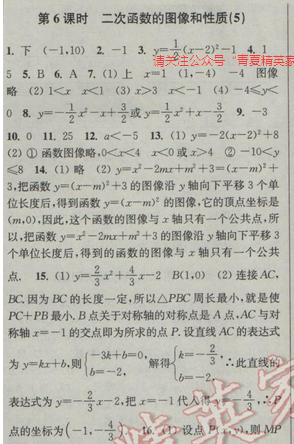 第6课时 二次函数的图像和性质(5)
1. 下 (-1,10) 2. -1 3. y=1/2(x-2)²-1 4. 1
请关注公众号“青夏精英家
5 5. B 6. A 7. (1) 上 x=1 (1,-4) -4 图像
略 (2) 1<x x<1 (3) x>3 x<-1 (4) -4≤y<
0 8. y=-1/2x²-x+3/2或y=1/2x²+x-3/2 9. -3
10. 0 11. 25 12. a<-5 13. (1) y=-2(x-2)²+8
(2) ① 函数图像略,0<x<4 x<0或x>4 ② -10<y
≤8 14. (1) 略 (2) y=x²-2mx+m²+3=(x-m)²+
3,把函数y=(x-m)²+3的图像沿y轴向下平移3个单
位长度后,得到函数y=(x-m)²的图像,它的顶点坐标是
(m,0),因此,这个函数的图像与x轴只有一个公共点,所
以,把函数y=x²-2mx+m²+3的图像沿y轴向下平移3
个单位长度后,得到的函数的图像与x轴只有一个公共
点. 15. (1) y=2/3x²+4/3x-2 B(1,0) (2) 连接AC,
BC.因为BC的长度一定,所以△PBC周长最小,就是使
PC+PB最小.B点关于对称轴的对称点是A点,AC与对
称轴x=-1的交点即为所求的点P.设直线AC的表达式
为y=kx+b,则{-3k+b=0, b=-2, 解得{k=-2/3, b=-2. ∴此直线的
表达式为y=-2/3x-2,把x=-1代入得y=-4/3,∴P
点的坐标为(-1,-4/3) 16. (1) 设点P(x,y),则MP